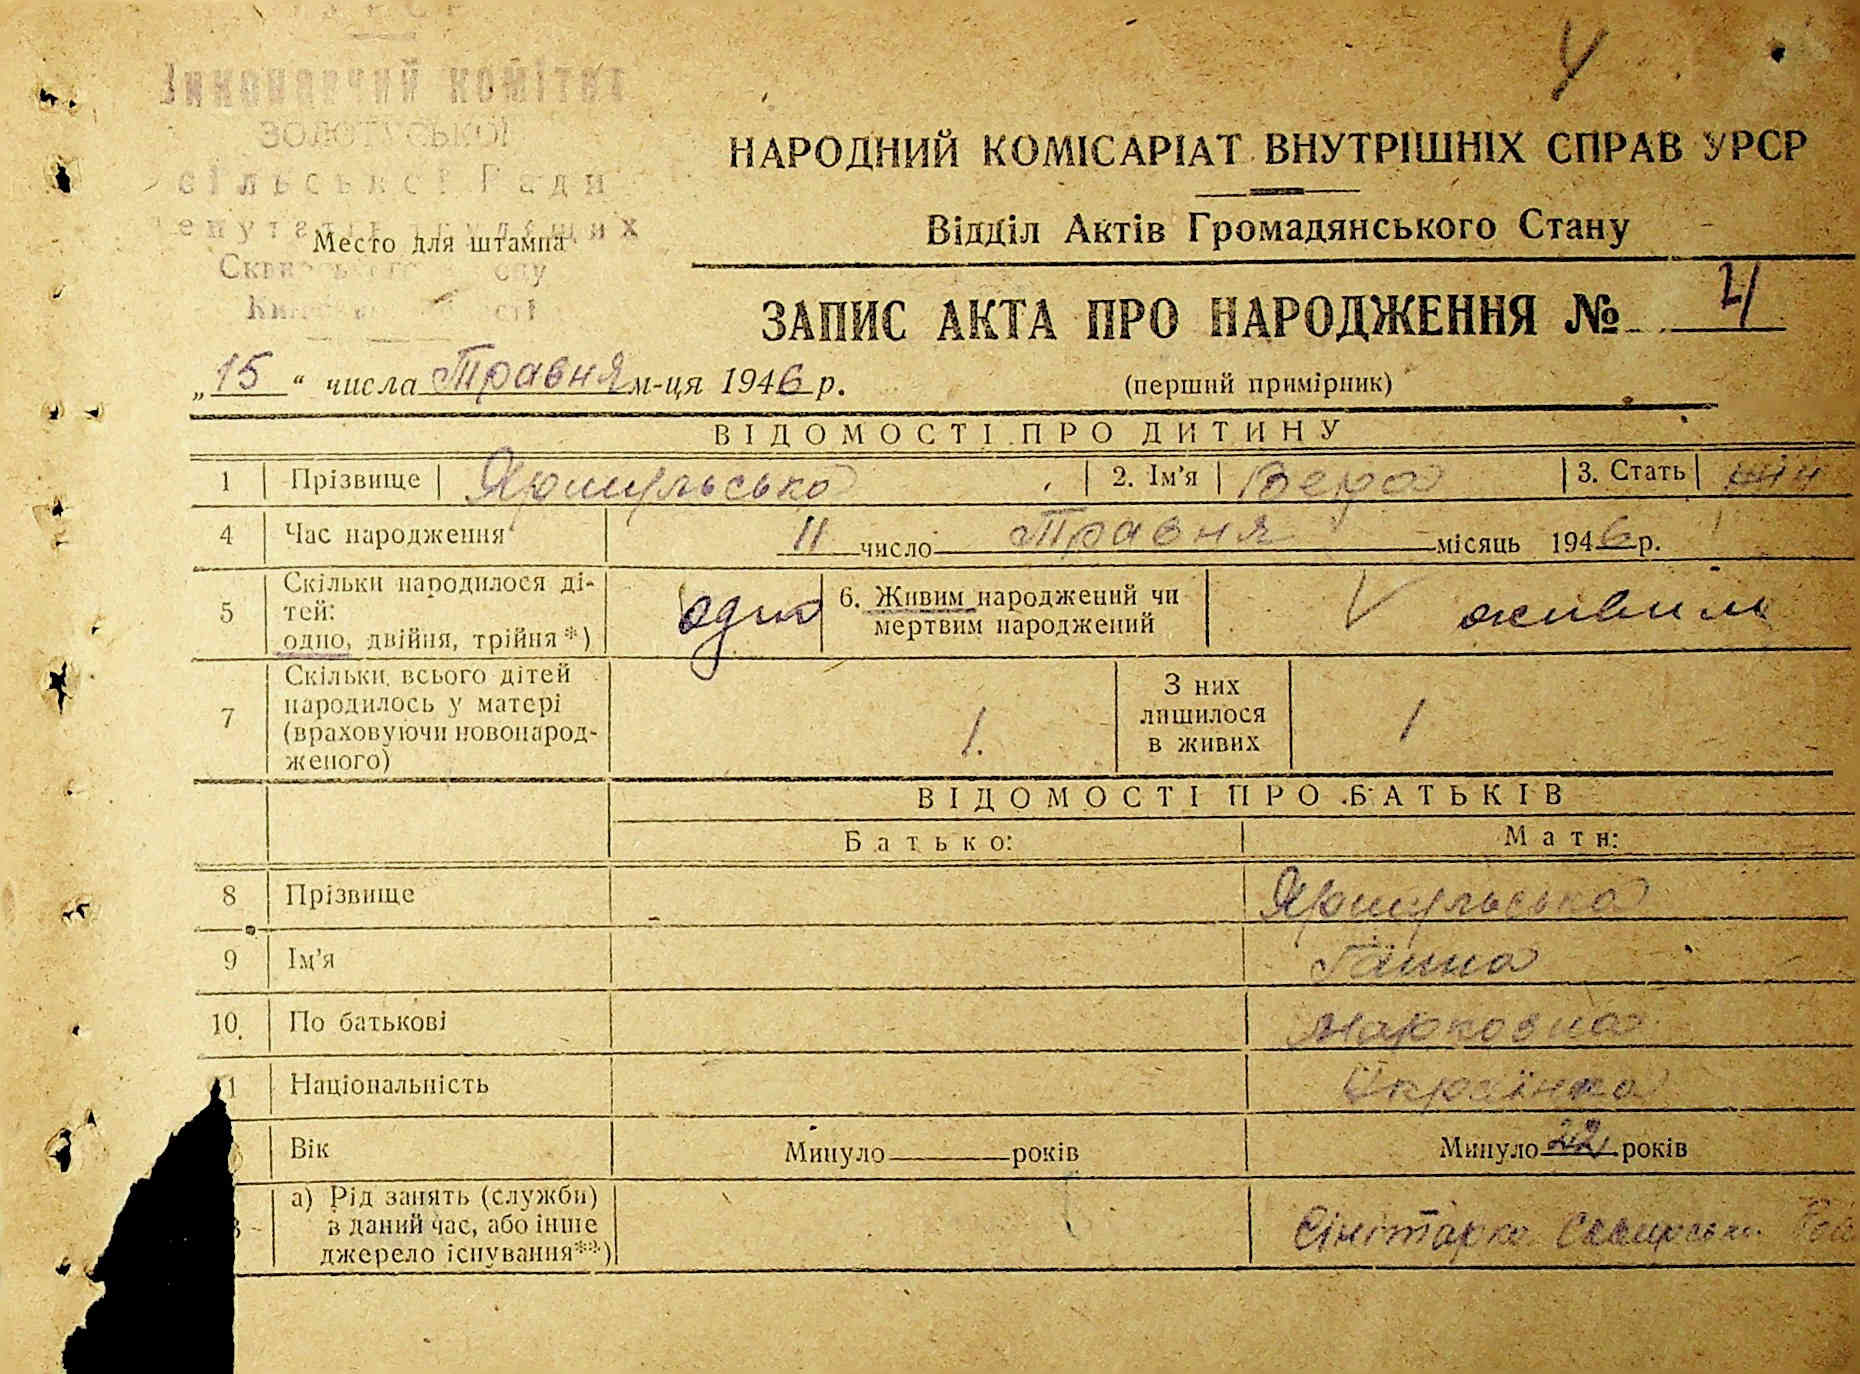 Виконавчий комітет
ЗОЛОТУСЬКОЇ
сільської Ради
депутатів трудящих
Место для штампа
НАРОДНИЙ КОМІСАРІАТ ВНУТРІШНІХ СПРАВ УРСР
Відділ Актів Громадянського Стану
ЗАПИС АКТА ПРО НАРОДЖЕННЯ № 4
„15“ числа Травня м-ця 1946 р.
(перший примірник)
ВІДОМОСТІ ПРО ДИТИНУ
1 Прізвище 2. Ім'я Вера 3. Стать жін
4 Час народження 11 число Травня місяць 1946 р.
5 Скільки народилося ді-
тей:
одно, двійня, трійня*) одно 6. Живим народжений чи
мертвим народжений живим
7 Скільки всього дітей
народилось у матері
(враховуючи новонарод-
женого) 1. З них
лишилося
в живих 1
ВІДОМОСТІ ПРО БАТЬКІВ
Батько: Мати:
8 Прізвище
9 Ім'я Ганна
10. По батькові Марковна
11 Національність Українка
Вік Минуло років Минуло 22 років
а) Рід занять (служби)
в даний час, або інше
джерело існування**)